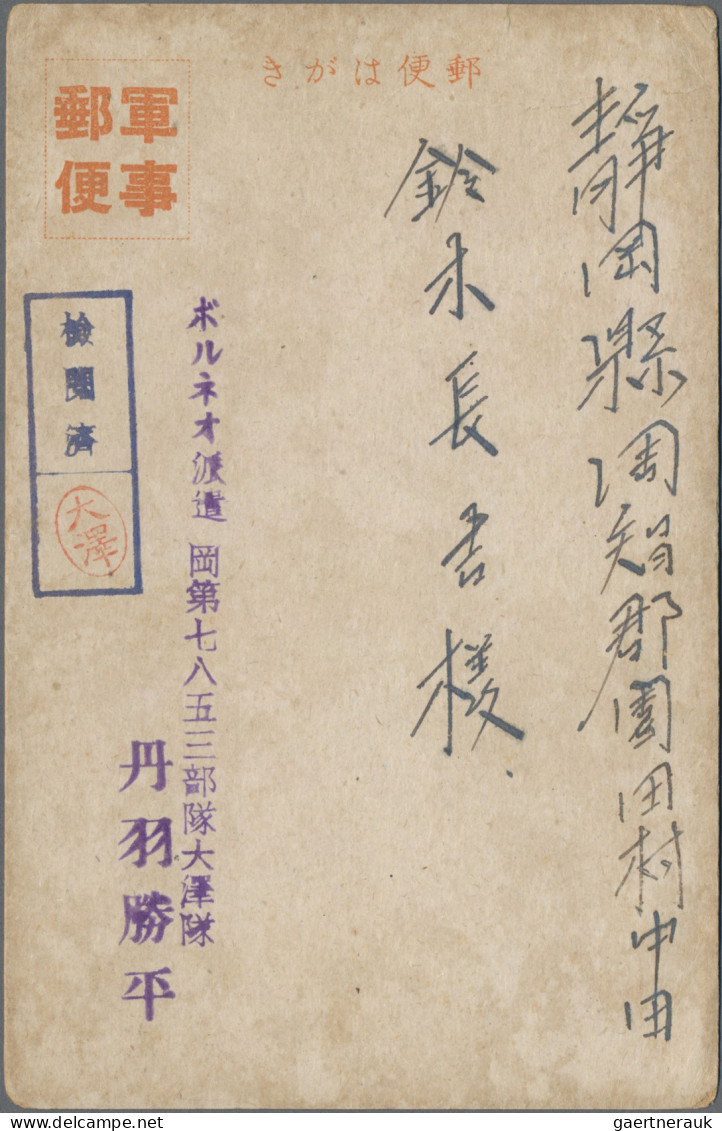 きがは便郵
軍事
郵便
静岡縣周智郡園田村中田
鈴木長吉様
ボルネオ派遣 岡第七八五三部隊大澤隊
丹羽勝平
檢閲濟
大澤
gaertnerauk